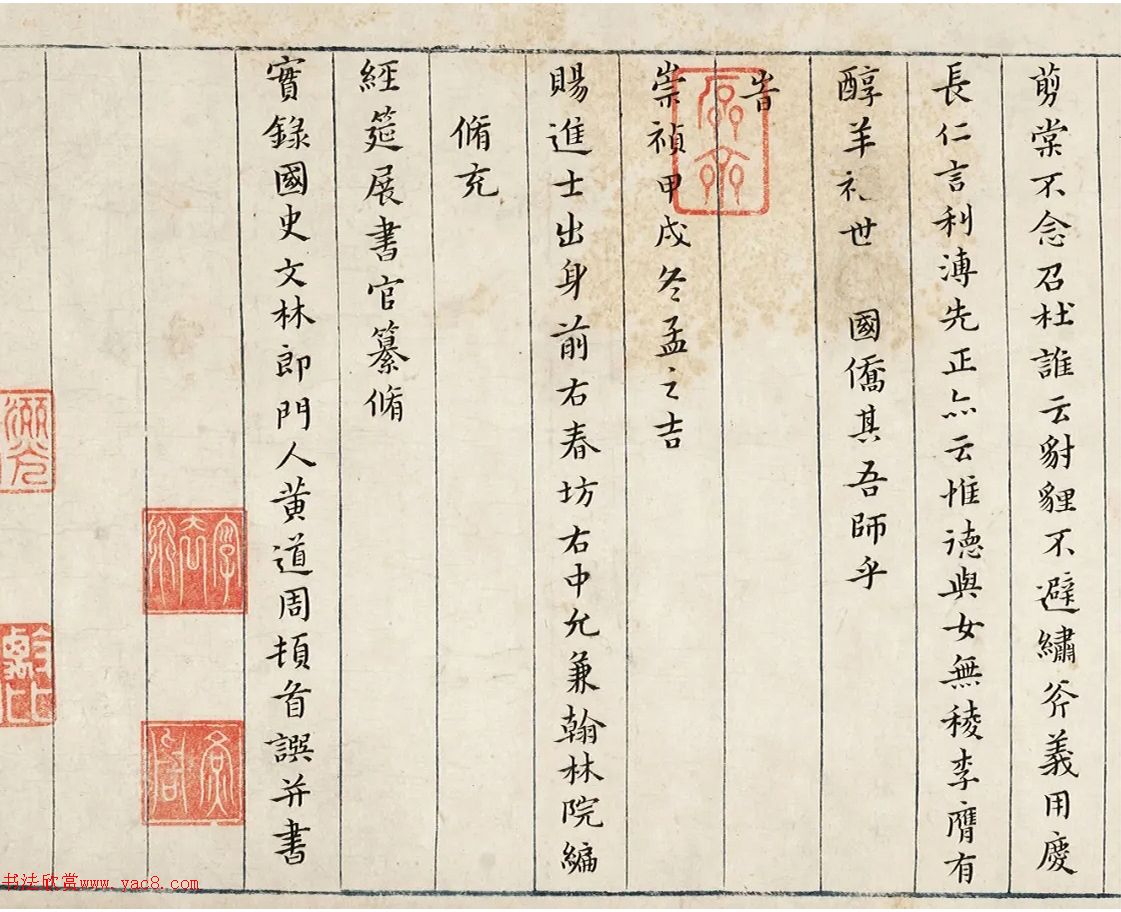 剪棠不念召杜誰云豺貍不避繡斧義用慶
長仁言利溥先正亦云惟德與女無稜李膺有
醇羊礼世國僑其吾師乎
旹
崇禎甲戌冬孟之吉
賜進士出身前右春坊右中允兼翰林院編
脩充
經筵展書官纂脩
實錄國史文林郎門人黄道周頓首譔并書
书法欣赏www.yac8.com